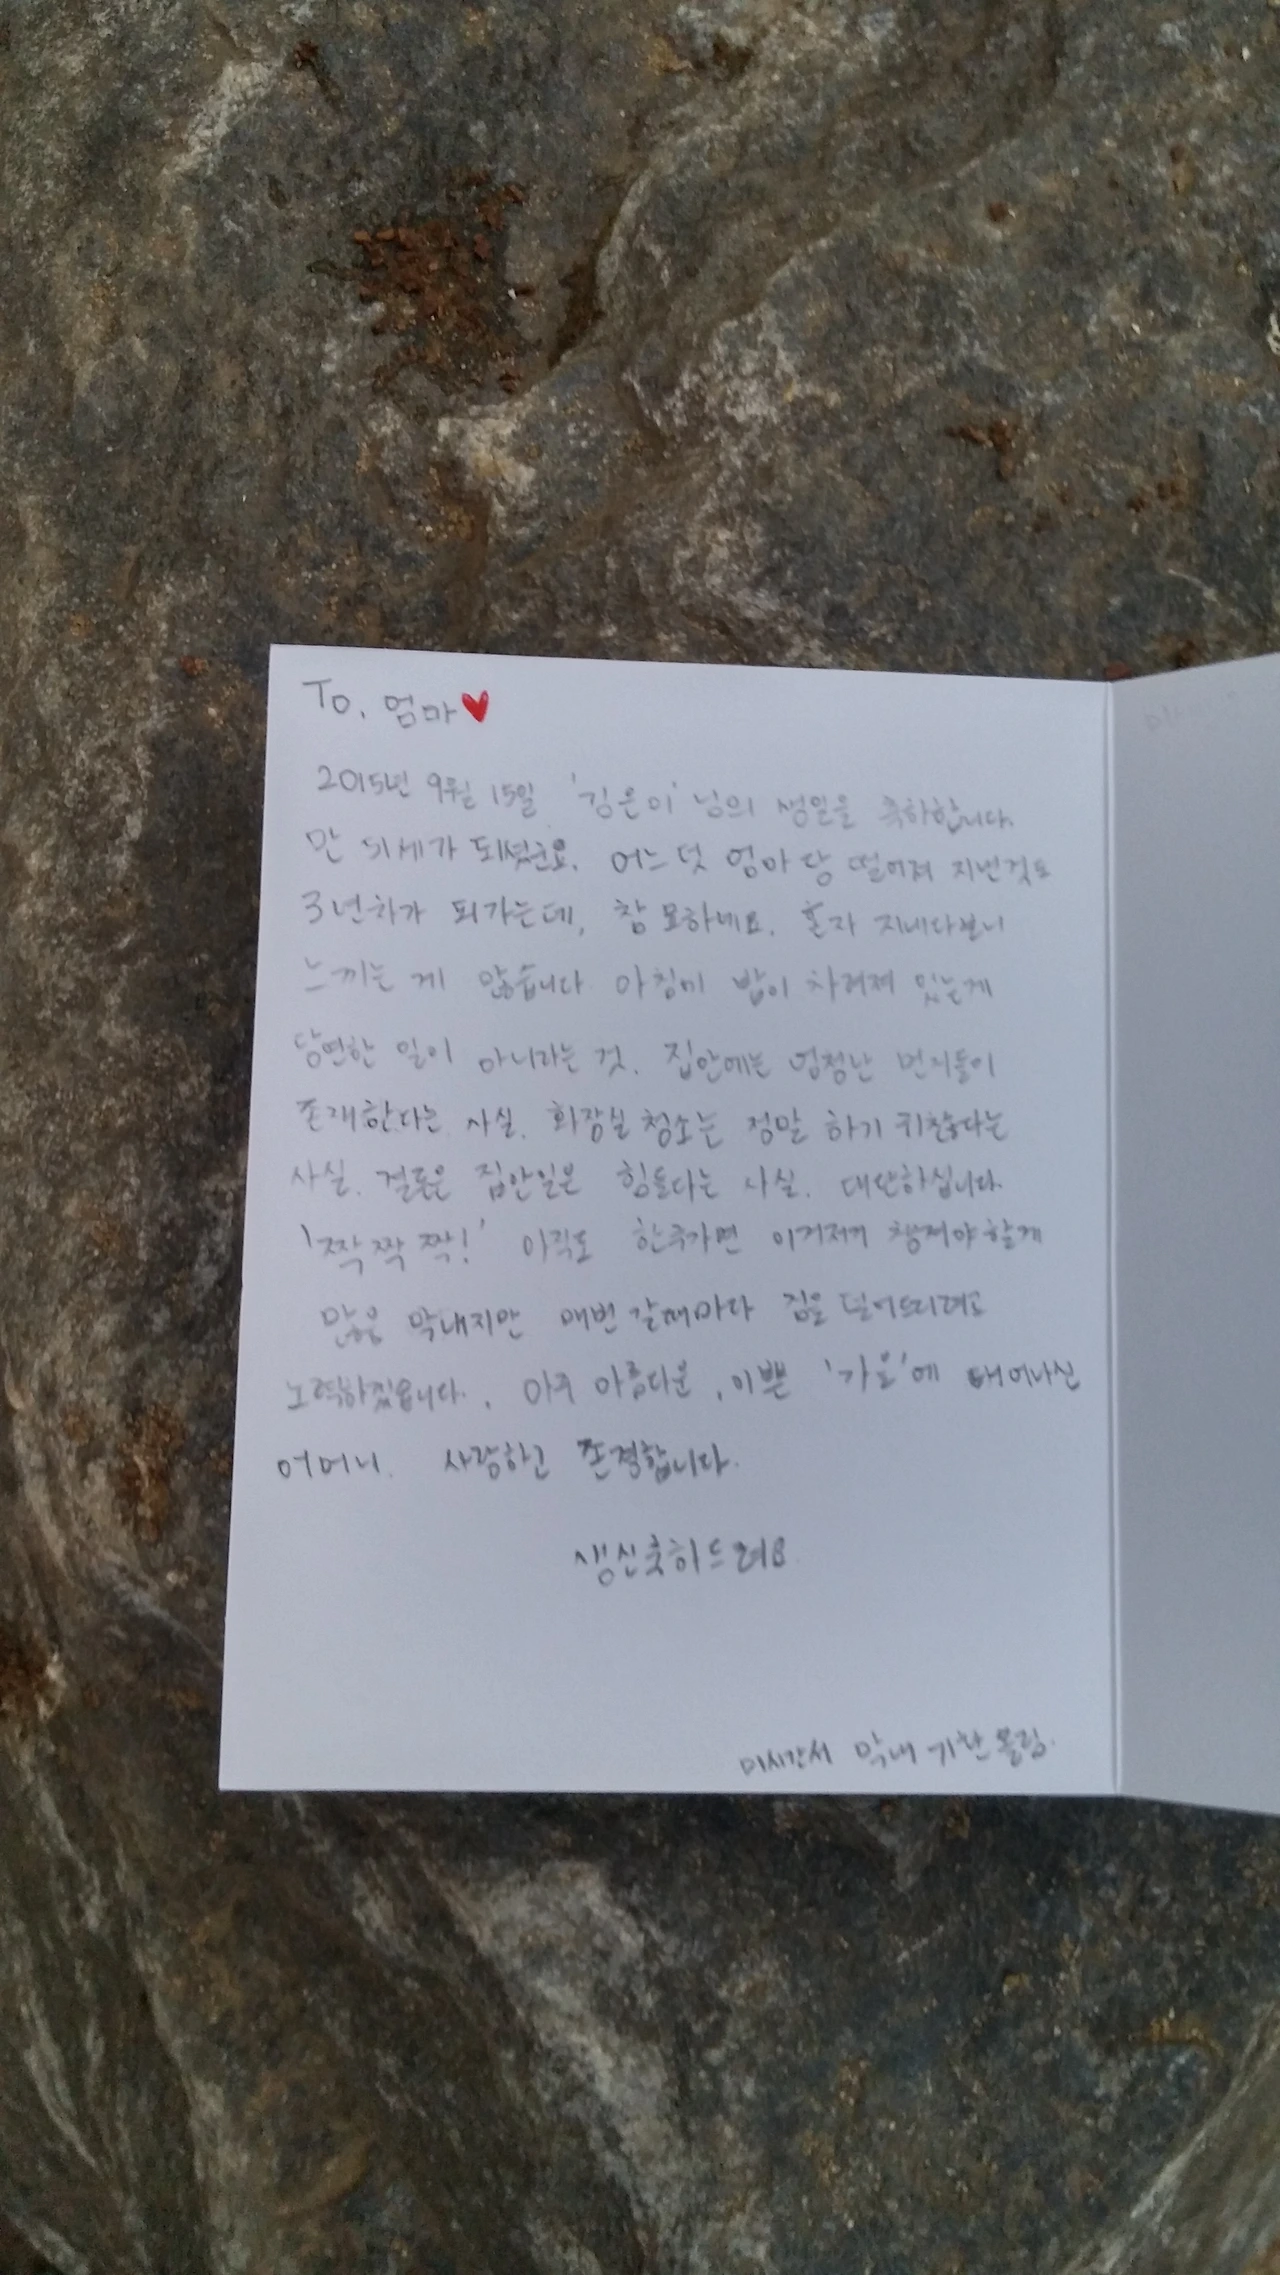 To. 엄마♥
2015년 9월 15일. '김은이' 님의 생일을 축하합니다.
만 세가 되셨군요. 어느덧 엄마랑 떨어져 지낸것도
3년차가 되가는데, 참 묘하네요. 혼자 지내다보니
느끼는 게 많습니다. 아침마다 밥이 차려져 있는게
당연한 일이 아니라는 것. 집안에는 엄청난 먼지들이
존재한다는 사실. 화장실 청소는 정말 하기 귀찮다는
사실. 결론은 집안일은 힘들다는 사실. 대단하십니다.
'짝짝짝!' 아직도 한국가면 이거저거 챙겨야할게
많은 막내지만 매번 갈때마다 짐을 덜어드리려고
노력하겠습니다. 아주 아름다운, 이쁜 '가을'에 태어나신
어머니. 사랑하고 존경합니다.
생신축하드려요
미시간서 막내 올림.